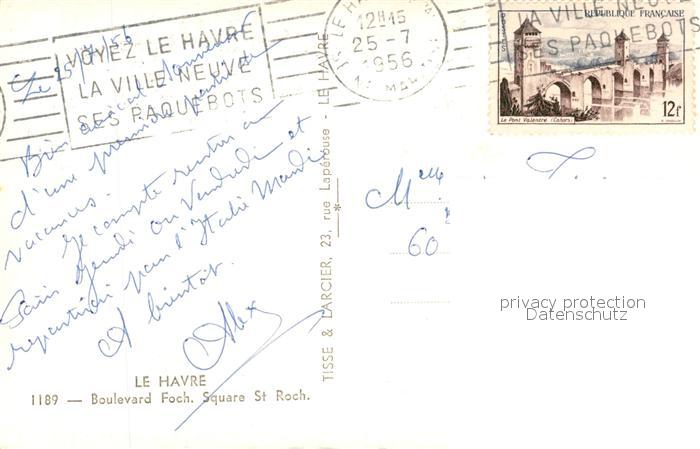 VOYEZ LE HAVRE
LA VILLE NEUVE
SES PAQUEBOTS
LE HAVRE
12H15
25-7
1956
LA VILLE NEUVE
SES PAQUEBOTS
RÉPUBLIQUE FRANÇAISE
Le Pont Valentré (Cahors)
12f
Le 25/7/56
Bien amical souvenir
d'une première partie de
vacances.
Je compte rentrer à
Paris Jeudi ou Vendredi et
repartirai pour l'Italie Mardi
A bientôt.
Alex
LE HAVRE
1189 — Boulevard Foch. Square St Roch.
TISSE & LARCIER, 23, rue Lapérouse - LE HAVRE
Melle
60
privacy protection
Datenschutz